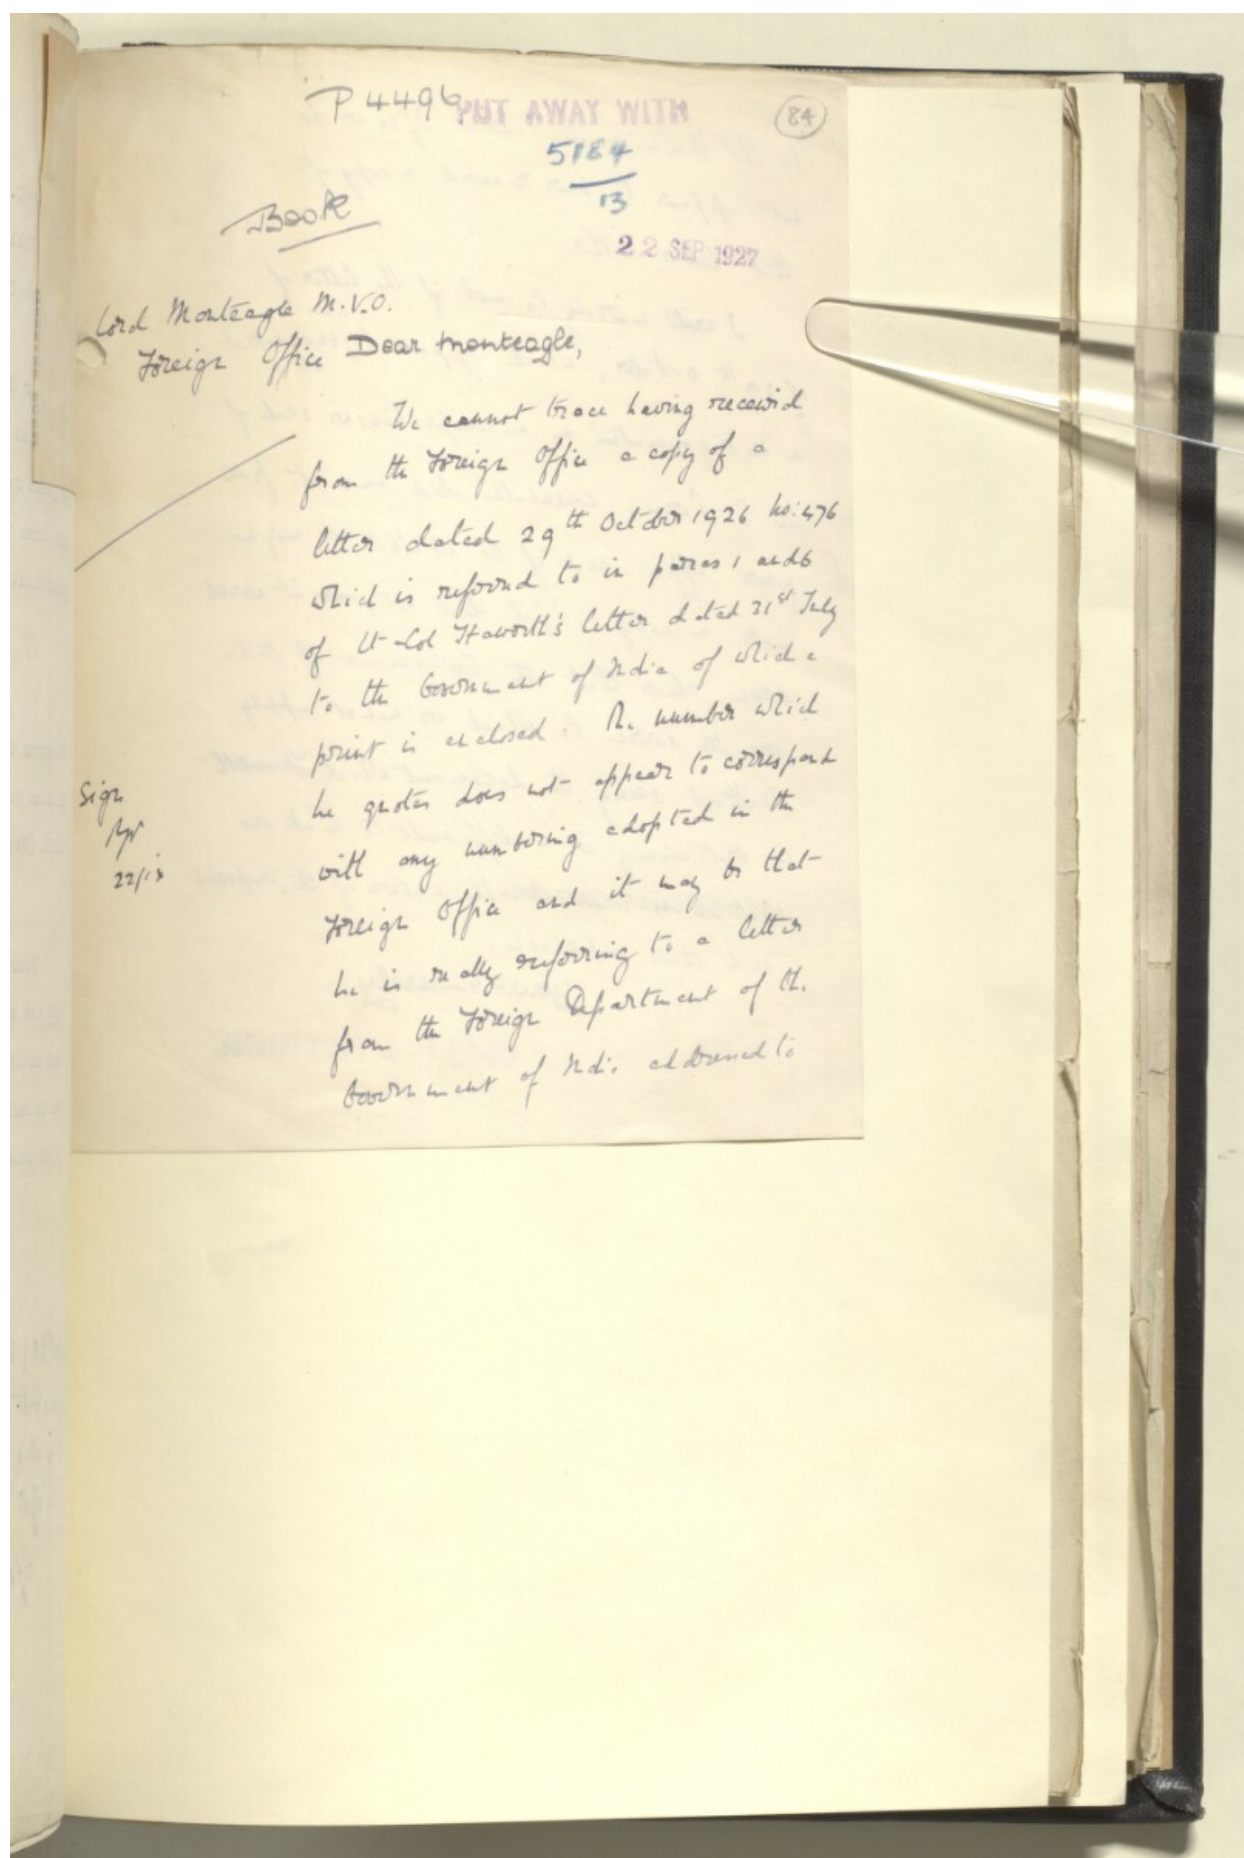 P 4496
PUT AWAY WITH
84
5184
13
Book
22 SEP 1927
Lord Monteagle M.V.O.
Foreign Office
Dear Monteagle,
We cannot trace having received
from the Foreign Office a copy of a
letter dated 29th October 1926 No: 476
which is referred to in paras 1 and 6
of Lt-Col Haworth's letter dated 31st July
to the Government of India of which a
print is enclosed. The number which
he quotes does not appear to correspond
with any numbering adopted in the
Foreign Office and it may be that
he is really referring to a letter
from the Foreign Department of the
Government of India addressed to
Sign
22/ix